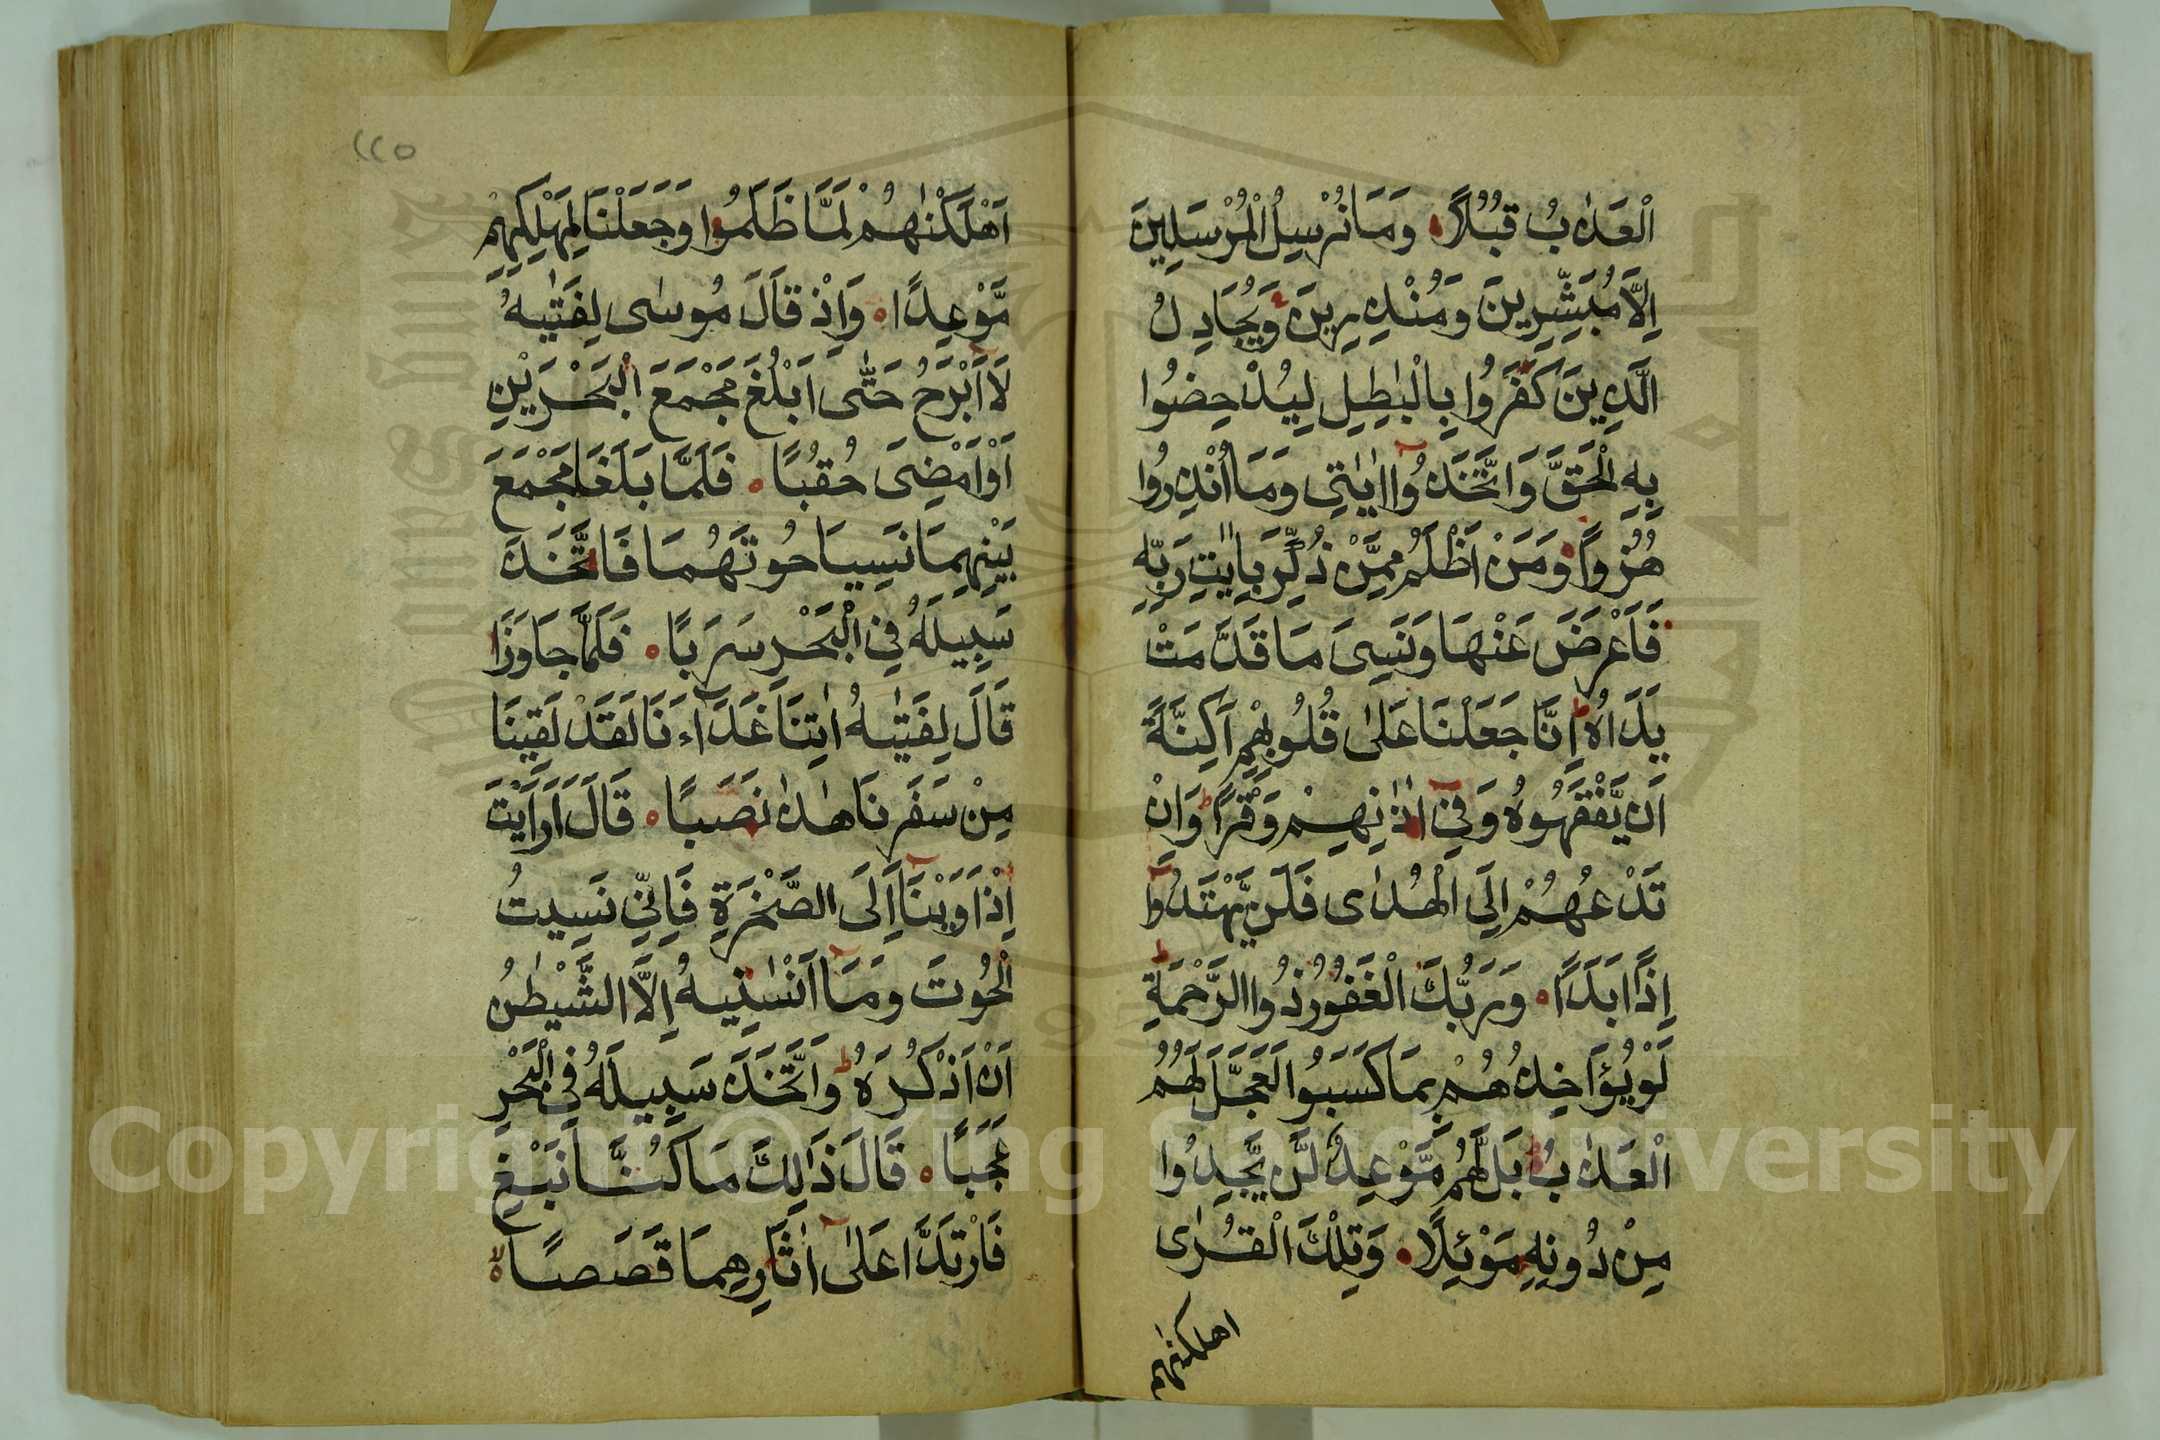 الْعَذَابُ قُبُلًا وَمَا نُرْسِلُ الْمُرْسَلِينَ
اِلَّا مُبَشِّرِينَ وَمُنْذِرِينَ وَيُجَادِلُ
الَّذِينَ كَفَرُوا بِالْبٰطِلِ لِيُدْحِضُوا
بِهِ الْحَقَّ وَاتَّخَذُوٓا اٰيٰتِى وَمَا اُنْذِرُوا
هُزُوًا وَمَنْ اَظْلَمُ مِمَّنْ ذُكِّرَ بِاٰيٰتِ رَبِّهِ
فَاَعْرَضَ عَنْهَا وَنَسِىَ مَا قَدَّمَتْ
يَدَاهُ اِنَّا جَعَلْنَا عَلٰى قُلُوبِهِمْ اَكِنَّةً
اَنْ يَّفْقَهُوهُ وَفِىٓ اٰذَانِهِمْ وَقْرًا وَاِنْ
تَدْعُهُمْ اِلَى الْهُدٰى فَلَنْ يَّهْتَدُوٓا
اِذًا اَبَدًا وَرَبُّكَ الْغَفُورُ ذُوا الرَّحْمَةِ
لَوْ يُؤَاخِذُهُمْ بِمَا كَسَبُوا لَعَجَّلَ لَهُمُ
الْعَذَابُ بَلْ لَّهُمْ مَّوْعِدٌ لَّنْ يَّجِدُوا
مِنْ دُونِهِ مَوْئِلًا وَتِلْكَ الْقُرٰى
اهلكنٰهم
٢٢٥
اَهْلَكْنٰهُمْ لَمَّا ظَلَمُوا وَجَعَلْنَا لِمَهْلِكِهِمْ
مَّوْعِدًا وَاِذْ قَالَ مُوسٰى لِفَتٰيهُ
لَآ اَبْرَحُ حَتّٰى اَبْلُغَ مَجْمَعَ الْبَحْرَيْنِ
اَوْ اَمْضِىَ حُقُبًا فَلَمَّا بَلَغَا مَجْمَعَ
بَيْنِهِمَا نَسِيَا حُوتَهُمَا فَاتَّخَذَ
سَبِيلَهُ فِى الْبَحْرِ سَرَبًا فَلَمَّا جَاوَزَا
قَالَ لِفَتٰيهُ اٰتِنَا غَدَآءَنَا لَقَدْ لَقِينَا
مِنْ سَفَرِنَا هٰذَا نَصَبًا قَالَ اَرَاَيْتَ
اِذْ اَوَيْنَآ اِلَى الصَّخْرَةِ فَاِنِّى نَسِيتُ
الْحُوتَ وَمَآ اَنْسٰنِيهُ اِلَّا الشَّيْطٰنُ
اَنْ اَذْكُرَهُ وَاتَّخَذَ سَبِيلَهُ فِى الْبَحْرِ
عَجَبًا قَالَ ذَالِكَ مَا كُنَّا نَبْغِ
فَارْتَدَّا عَلٰٓى اٰثَارِهِمَا قَصَصًا
Copyright © King Saud University